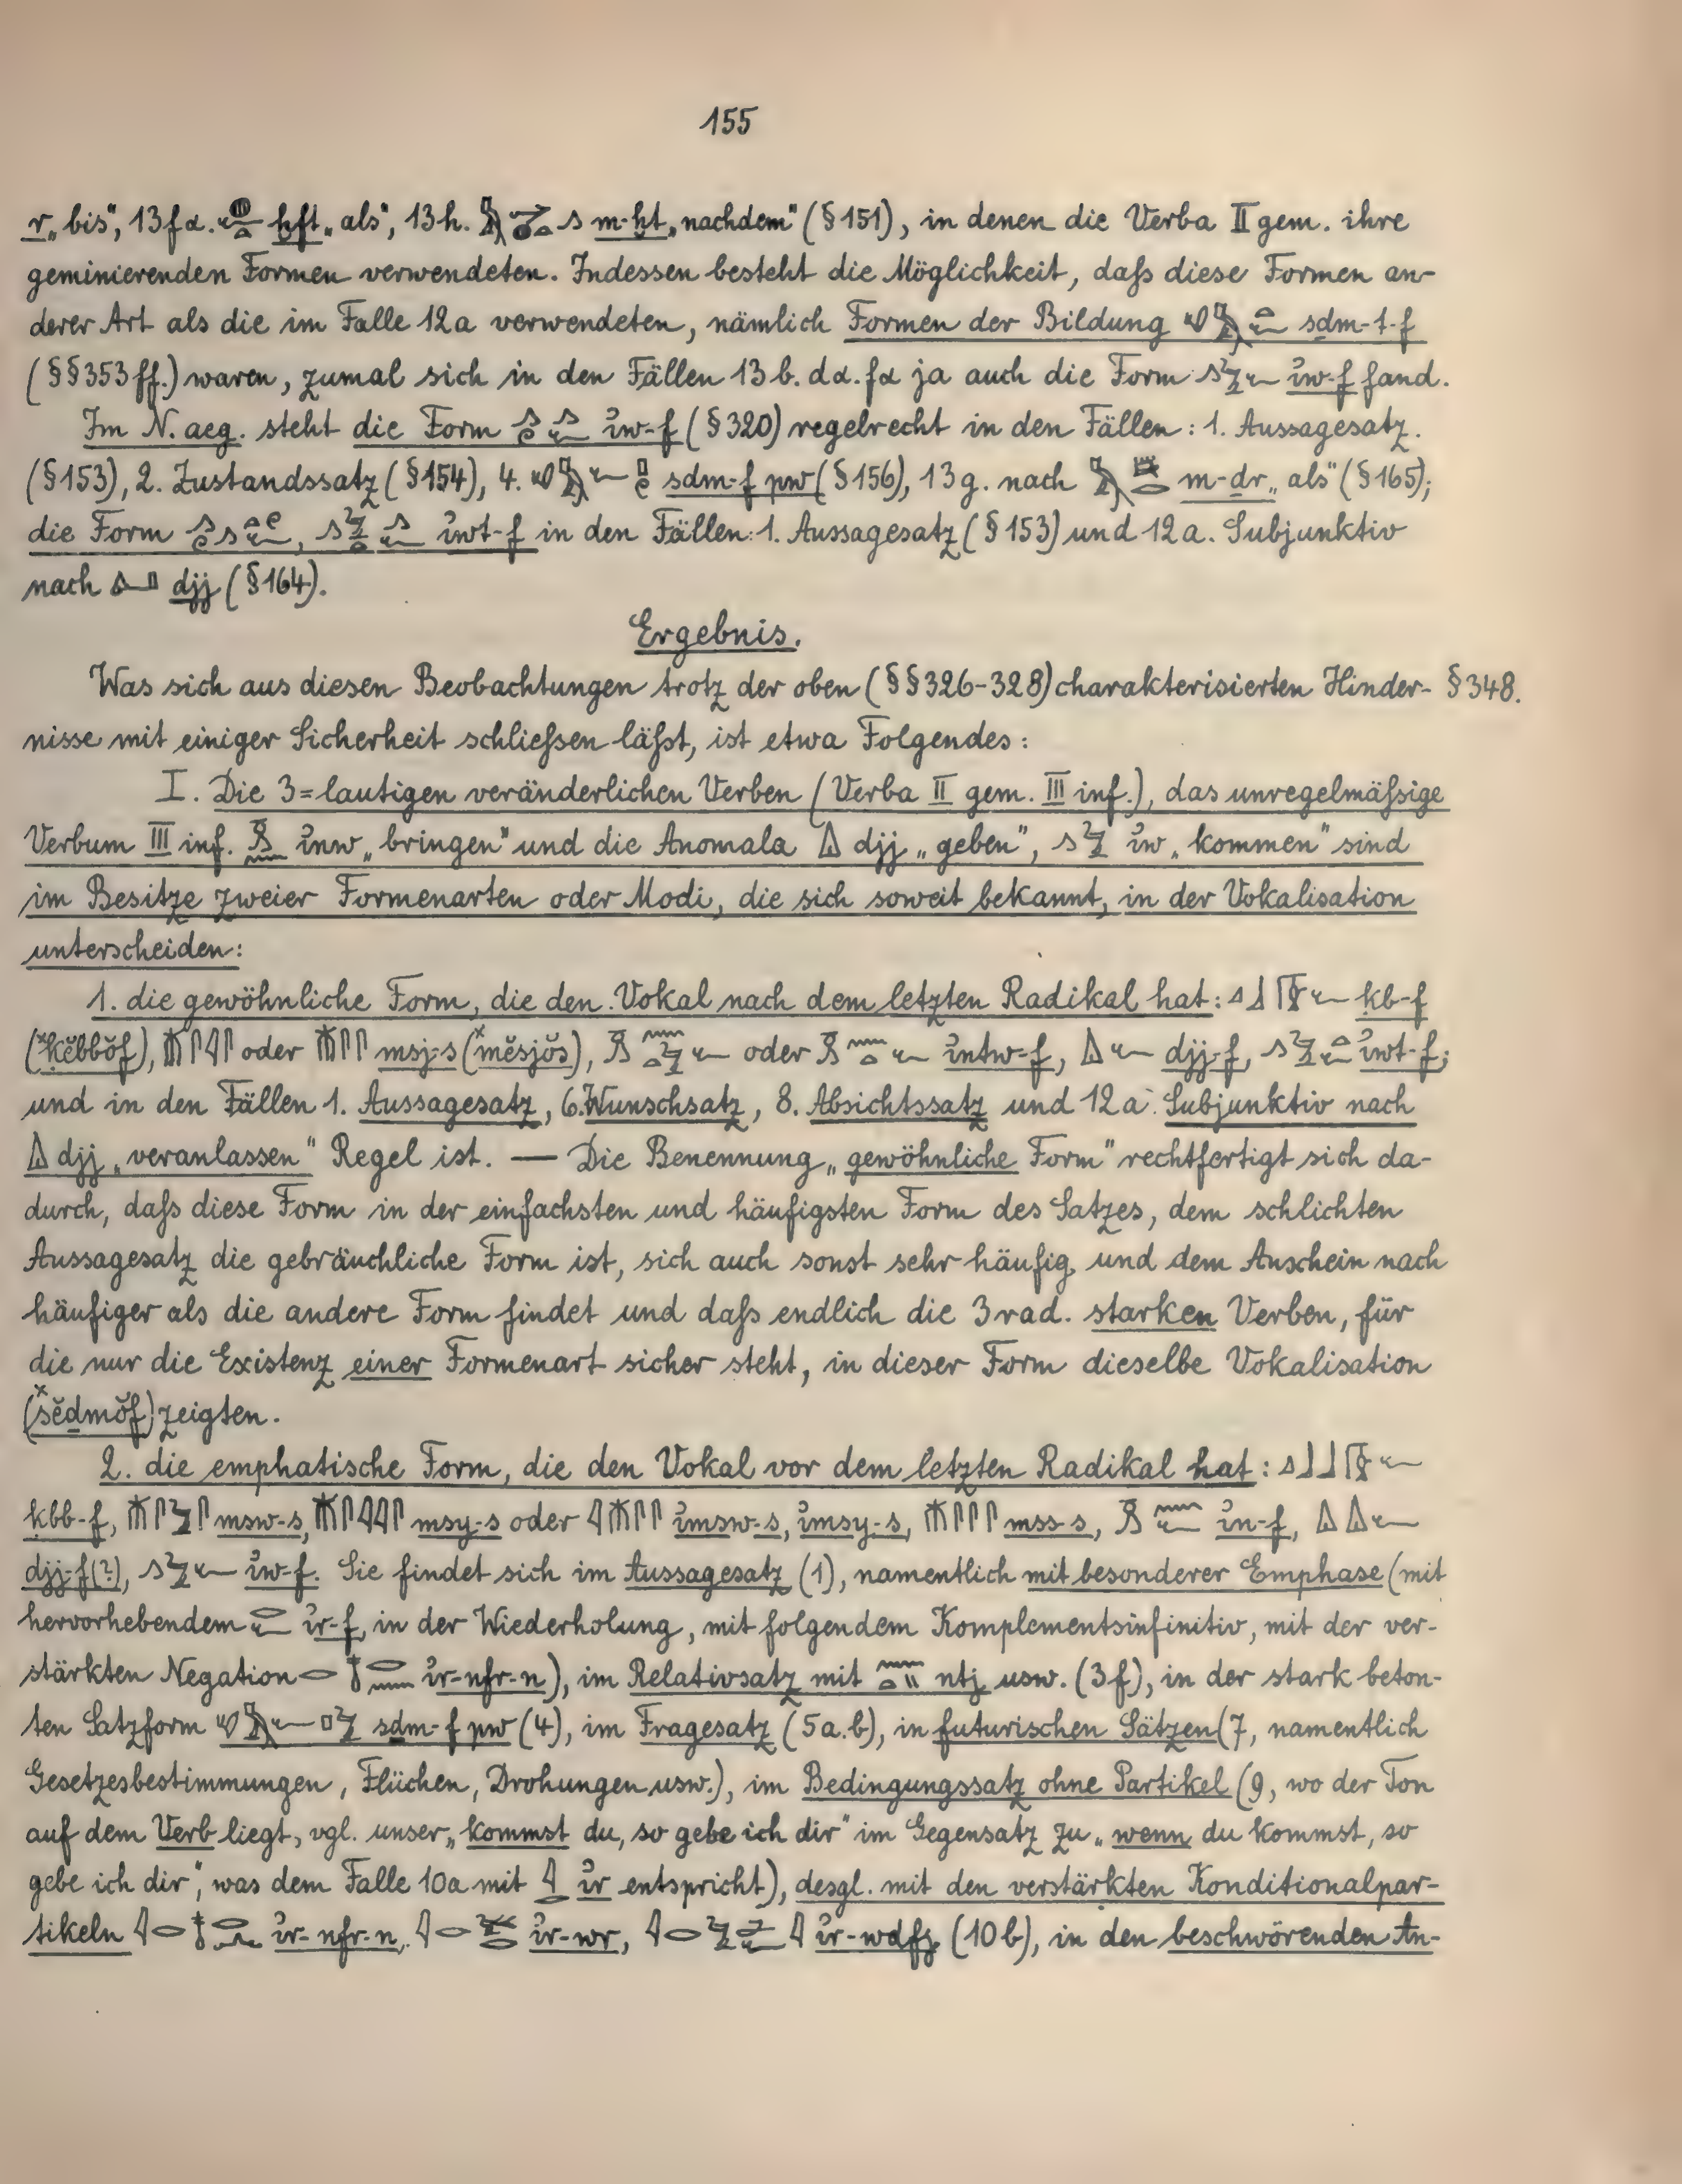 155
r „bis“, 13fα. ḫft „als“, 13h. m-ḫt „nachdem“ (§151), in denen die Verba II gem. ihre
geminierenden Formen verwendeten. Indessen besteht die Möglichkeit, daſs diese Formen an-
derer Art als die im Falle 12a verwendeten, nämlich Formen der Bildung sḏm-t-f
(§§353ff.) waren, zumal sich in den Fällen 13b. dα. fα ja auch die Form iw-f fand.
Im N. aeg. steht die Form iw-f (§320) regelrecht in den Fällen: 1. Aussagesatz.
(§153), 2. Zustandssatz (§154), 4. sḏm-f pw (§156), 13g. nach m-dr „als“ (§165);
die Form iwt-f in den Fällen: 1. Aussagesatz (§153) und 12a. Subjunktiv
nach djj (§164).
Ergebnis.
Was sich aus diesen Beobachtungen trotz der oben (§§326-328) charakterisierten Hinder- §348.
nisse mit einiger Sicherheit schlieſsen läſst, ist etwa Folgendes:
I. Die 3=lautigen veränderlichen Verben (Verba II gem. III inf.), das unregelmäſsige
Verbum III inf. inw „bringen“ und die Anomala djj „geben“, iw „kommen“ sind
im Besitze zweier Formenarten oder Modi, die sich soweit bekannt, in der Vokalisation
unterscheiden:
1. die gewöhnliche Form, die den Vokal nach dem letzten Radikal hat: ḳb-f
(*ḳĕbbŏf), oder msj-s (*mĕsjŏs), oder intw-f, djj-f, iwt-f;
und in den Fällen 1. Aussagesatz, 6. Wunschsatz, 8. Absichtssatz und 12a. Subjunktiv nach
djj „veranlassen“ Regel ist. — Die Benennung „gewöhnliche Form“ rechtfertigt sich da-
durch, daſs diese Form in der einfachsten und häufigsten Form des Satzes, dem schlichten
Aussagesatz die gebräuchliche Form ist, sich auch sonst sehr häufig und dem Anschein nach
häufiger als die andere Form findet und daſs endlich die 3rad. starken Verben, für
die nur die Existenz einer Formenart sicher steht, in dieser Form dieselbe Vokalisation
(*sĕḏmŏf) zeigten.
2. die emphatische Form, die den Vokal vor dem letzten Radikal hat:
ḳbb-f, msw-s, msy-s oder imsw-s, imsy-s, mss-s, in-f,
djj-f(?), iw-f. Sie findet sich im Aussagesatz (1), namentlich mit besonderer Emphase (mit
hervorhebendem ir-f, in der Wiederholung, mit folgendem Komplementsinfinitiv, mit der ver-
stärkten Negation ir-nfr-n), im Relativsatz mit ntj usw. (3f), in der stark beton-
ten Satzform sḏm-f pw (4), im Fragesatz (5a.b), in futurischen Sätzen (7, namentlich
Gesetzesbestimmungen, Flüchen, Drohungen usw.), im Bedingungssatz ohne Partikel (9, wo der Ton
auf dem Verb liegt, vgl. unser „kommst du, so gebe ich dir“ im Gegensatz zu „wenn du kommst, so
gebe ich dir“, was dem Falle 10a mit ir entspricht), desgl. mit den verstärkten Konditionalpar-
tikeln ir-nfr-n, ir-wr, ir-wdfj (10b), in den beschwörenden An-